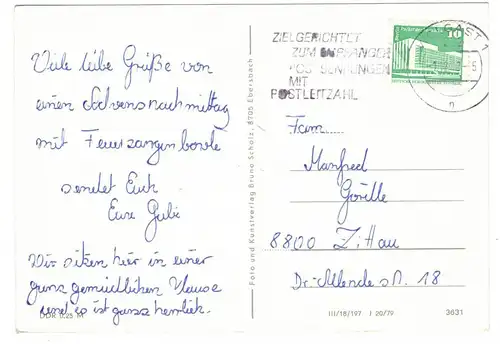 Viele liebe Grüße von
einen Advensnachmittag
mit Feuerzangenbowle
sendet Euch
Eure Gabi
Wir sitzen hier in einer
ganz gemütlichen Klause
und es ist ganz herrlich.
DDR 0,25 M
Foto und Kunstverlag Bruno Scholz, 8705 Ebersbach
ZIELGERICHTET
ZUM EMPFÄNGER
POSTSENDUNGEN
MIT
POSTLEITZAHL
10
Fam.
Manfred
Görlle
8800 Zittau
Dr.-Allende-St. 18
III/18/197 I 20/79 3631